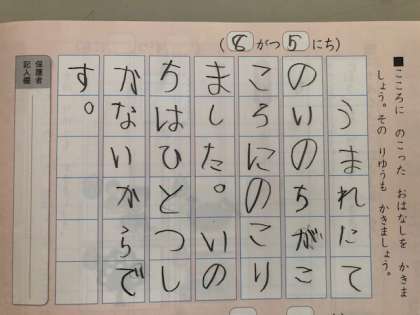 (8がつ5にち)
■こころに のこった おはなしを かきま
しょう。その りゆうも かきましょう。
うまれたて
のいのちがこ
ころにのこり
ました。いの
ちはひとつし
かないからで
す。
保護者
記入欄